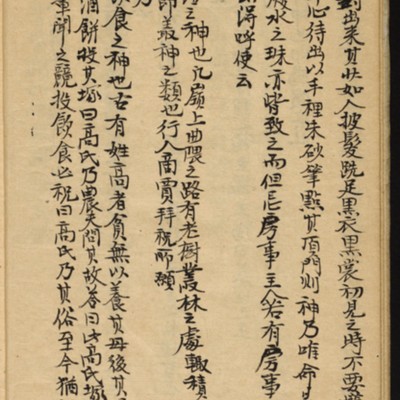 對出来其状如人披髮跣足黒衣黒裳初見之時不要
心待出以手裡朱砂筆點其頂門則神乃唯命
水之珠亦皆致之而但忌房事主人若有房事
得呼使云
之神也凡嶺上曲隈之路有老樹叢林之處輙積
即叢神之類也行人商賈拜祝所願
乃
食之神也古有姓高者貧無以養其母後其
酒餅投其塚曰高氏乃農夫問其故答曰此高氏塚
輩聞之競投飲食必祝曰高氏乃其俗至今猶